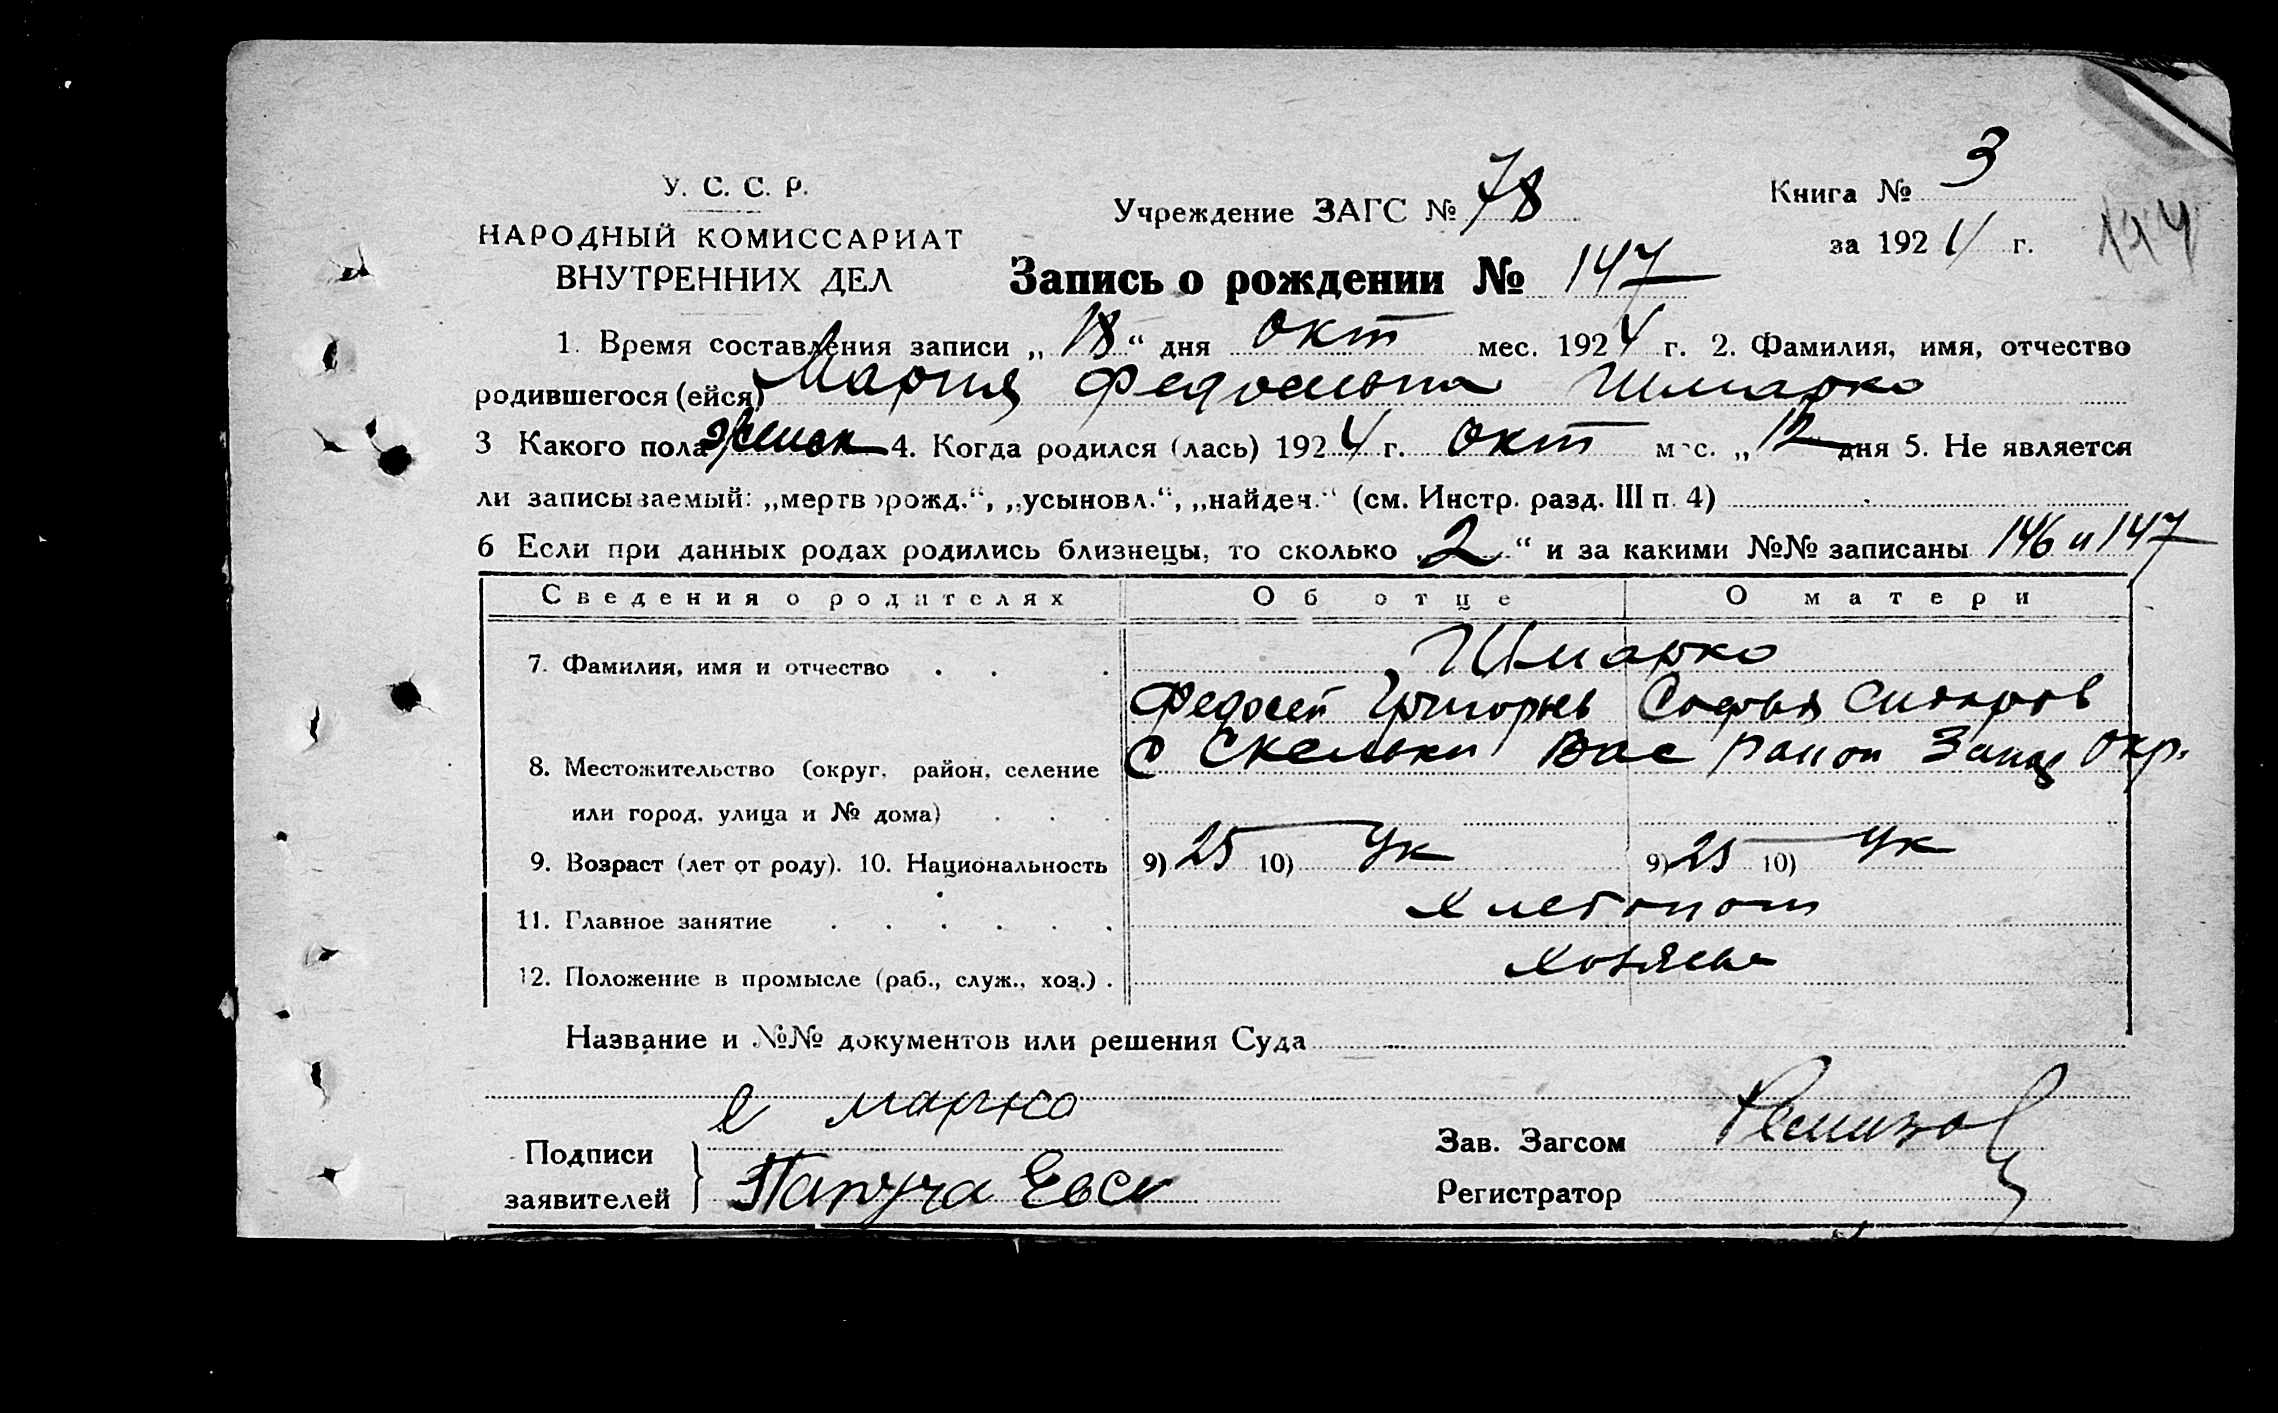 У. С. С. Р.
НАРОДНЫЙ КОМИССАРИАТ
ВНУТРЕННИХ ДЕЛ
Учреждение ЗАГС № 78
Книга № 3
за 1924 г.
Запись о рождении № 147
1. Время составления записи „18“ дня окт мес. 1924 г. 2. Фамилия, имя, отчество
родившегося (ейся) Мария Федосеевна Шмарко
3 Какого пола женск 4. Когда родился (лась) 1924 г. окт мес. „12 дня 5. Не является
ли записываемый: „мертворожд.“, „усыновл.“, „найден.“ (см. Инстр. разд. III п. 4)
6 Если при данных родах родились близнецы, то сколько „2“ и за какими №№ записаны 146 и 147
Сведения о родителях Об отце О матери
7. Фамилия, имя и отчество Шмарко
Федосей Григорьев Софья
8. Местожительство (округ, район, селение С Скельки Вас район Запор окр.
или город, улица и № дома)
9. Возраст (лет от роду). 10. Национальность 9) 25 10) Ук 9) 25 10) Ук
11. Главное занятие Хлебопаш
12. Положение в промысле (раб., служ., хоз.) Хозяева
Название и №№ документов или решения Суда
Подписи
заявителей
Зав. Загсом Ремизов
Регистратор